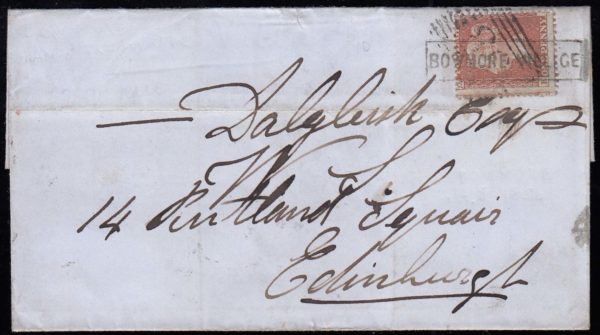 BOWMORE
Dalgleish Esqr
W S
14 Rutland Squair
Edinburgh